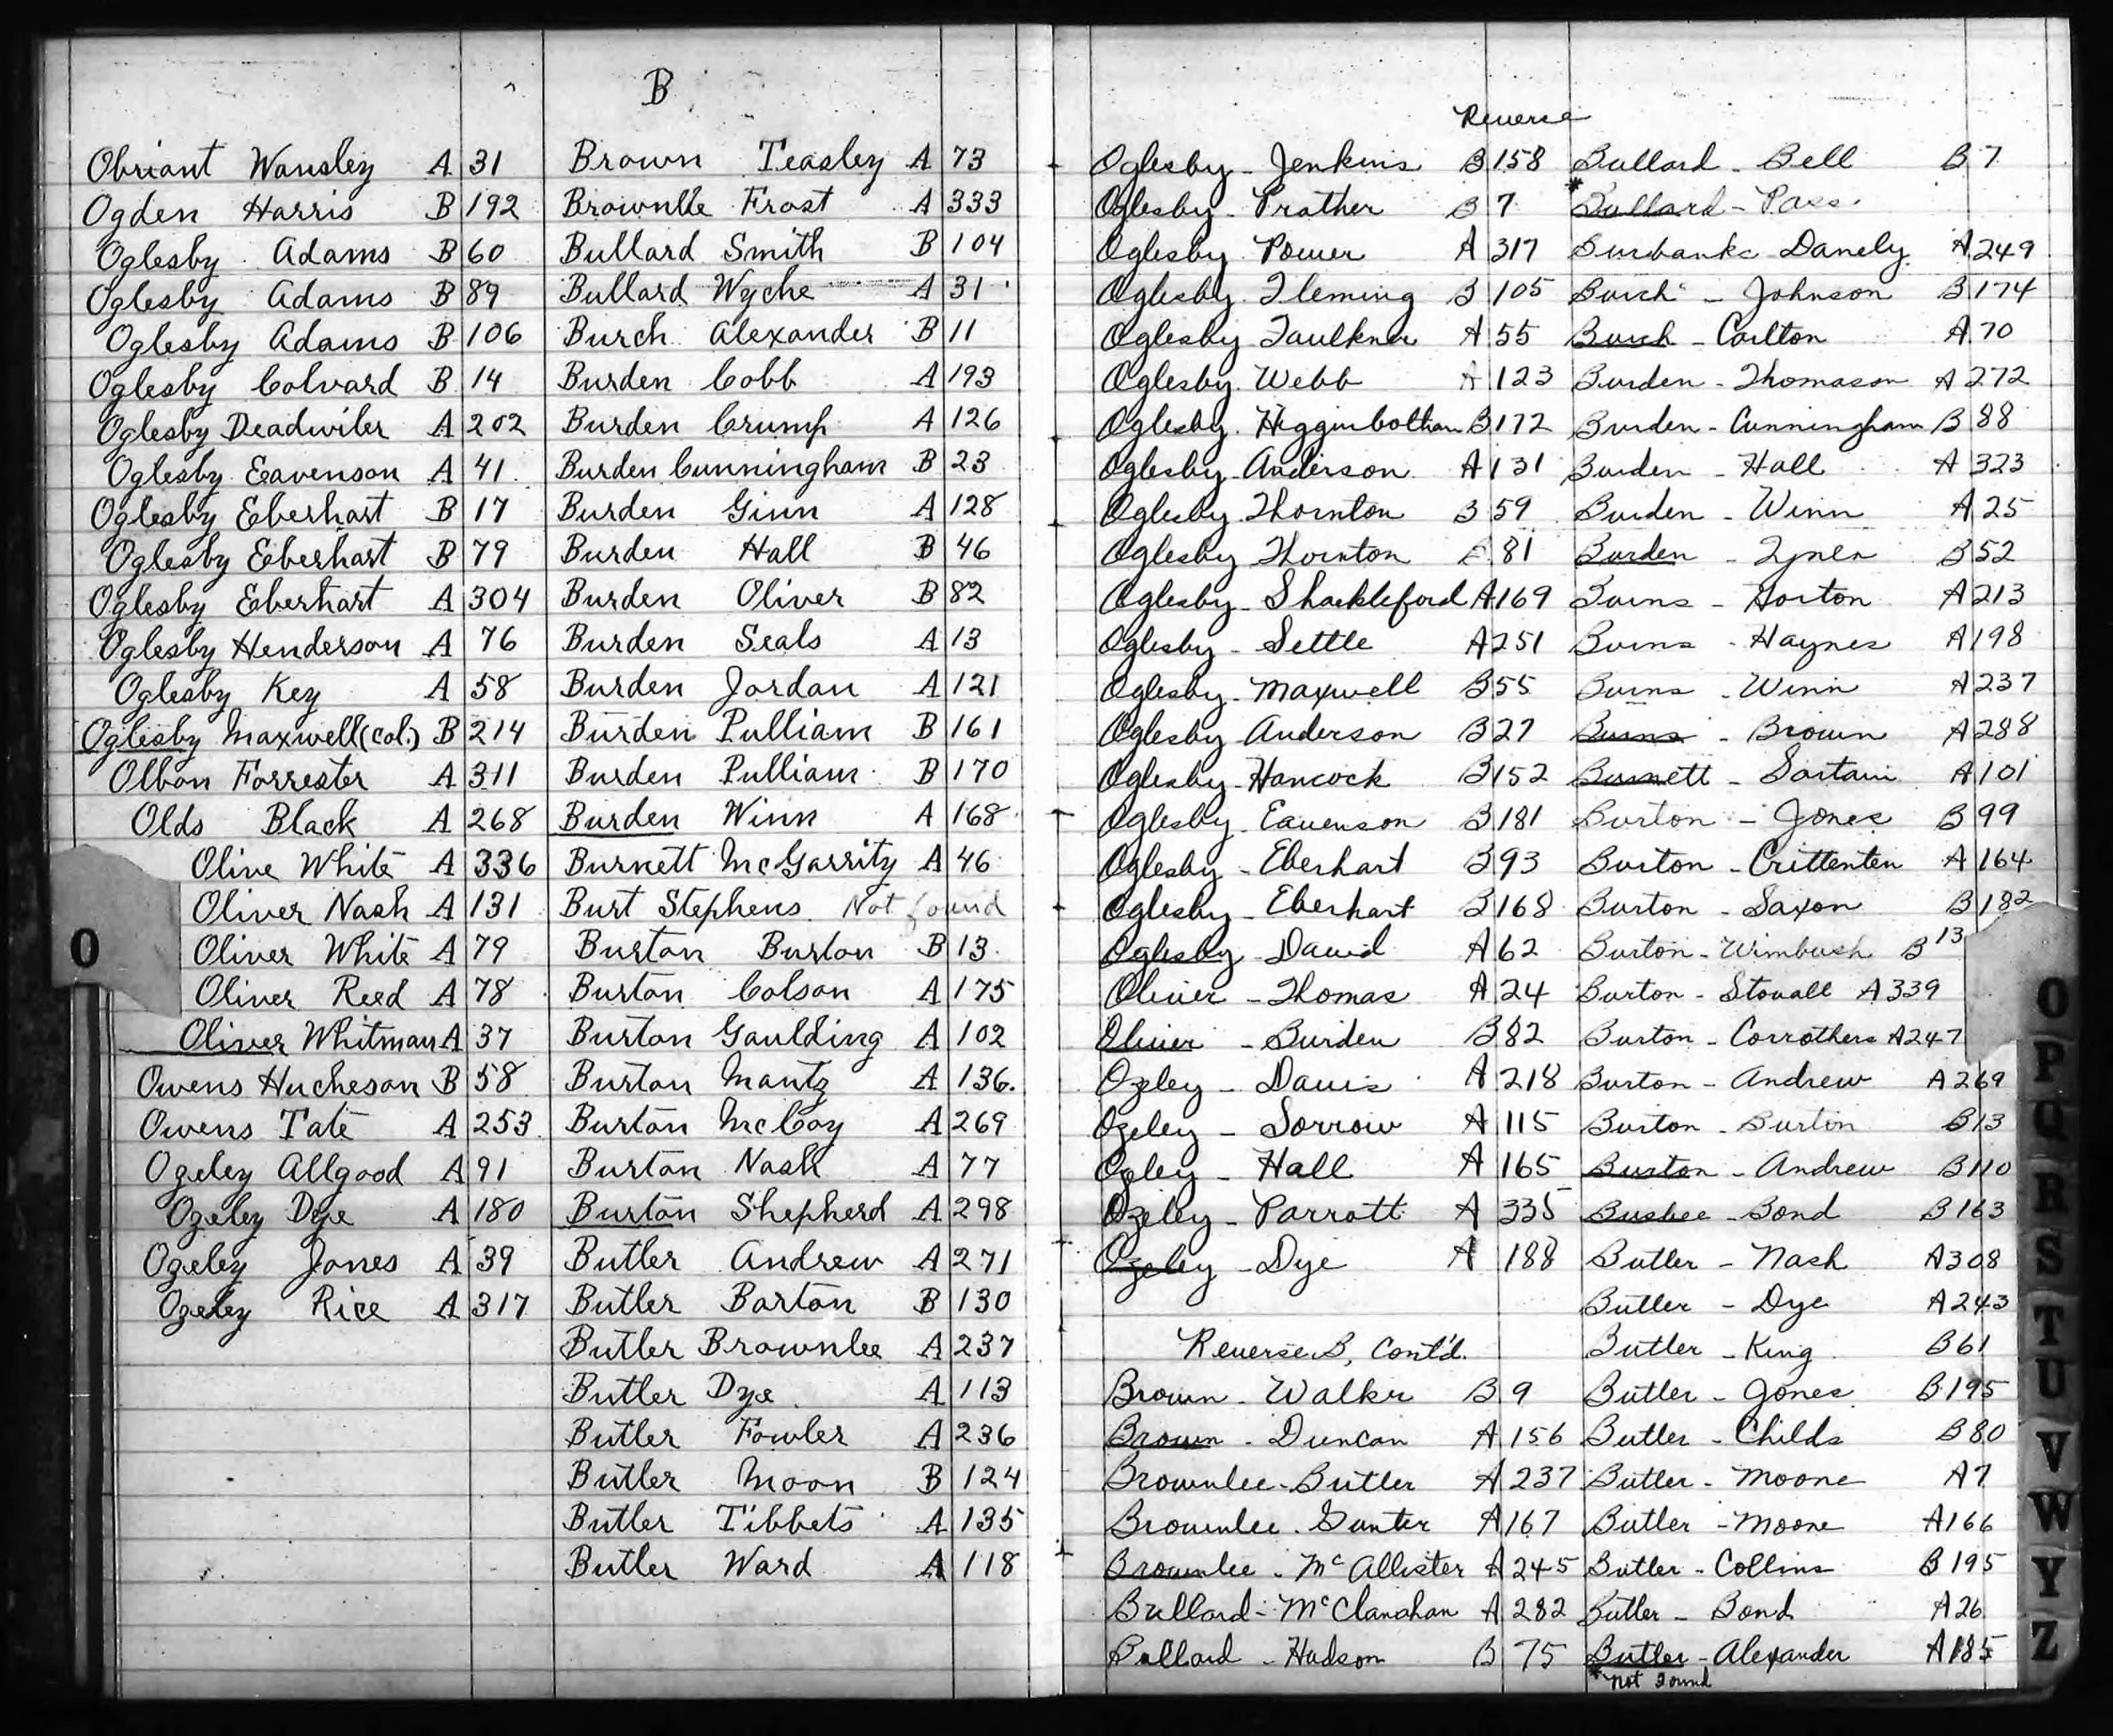 Obriant Wansley A 31
Ogden Harris B 192
Oglesby Adams B 60
Oglesby Adams B 89
Oglesby Adams B 106
Oglesby Colvard B 14
Oglesby Deadwiler A 202
Oglesby Eavenson A 41
Oglesby Eberhart B 17
Oglesby Eberhart B 79
Oglesby Eberhart A 304
Oglesby Henderson A 76
Oglesby Key A 58
Oglesby Maxwell (Col.) B 214
Olbon Forrester A 311
Olds Black A 268
Olive White A 336
Oliver Nash A 131
Oliver White A 79
Oliver Reed A 78
Oliver Whitman A 37
Owens Hucheson B 58
Owens Tate A 253
Ozeley Allgood A 91
Ozeley Dye A 180
Ozeley Jones A 39
Ozeley Rice A 317
O
B
Brown Teasley A 73
Brownlee Frost A 333
Bullard Smith B 104
Bullard Wyche A 31
Burch Alexander B 11
Burden Cobb A 193
Burden Crump A 126
Burden Cunningham B 23
Burden Ginn A 128
Burden Hall B 46
Burden Oliver B 82
Burden Seals A 13
Burden Jordan A 121
Burden Pulliam B 161
Burden Pulliam B 170
Burden Winn A 168
Burnett McGarrity A 46
Burt Stephens Not found
Burton Burton B 13
Burton Colson A 175
Burton Gaulding A 102
Burton Mantz A 136.
Burton McCoy A 269
Burton Nash A 77
Burton Shepherd A 298
Butler Andrew A 271
Butler Barton B 130
Butler Brownlee A 237
Butler Dye A 113
Butler Fowler A 236
Butler Moon B 124
Butler Tibbets A 135
Butler Ward A 118
Reverse
Oglesby - Jenkins B 158
Oglesby - Prather B 7
Oglesby Power A 317
Oglesby Fleming B 105
Oglesby Faulkner A 55
Oglesby Webb A 123
Oglesby Higginbotham B 172
Oglesby Anderson A 131
Oglesby Thornton B 59
Oglesby Thornton B 81
Oglesby - Shackleford A 169
Oglesby - Settle A 251
Oglesby - Maxwell B 55
Oglesby Anderson B 27
Oglesby - Hancock B 152
Oglesby - Eavenson B 181
Oglesby - Eberhart B 93
Oglesby - Eberhart B 168
Oglesby - David A 62
Oliver - Thomas A 24
Oliver - Burden B 82
Ozeley - Davis A 218
Ozeley - Sorrow A 115
Ozeley - Hall A 165
Ozeley - Parrott A 335
Ozeley - Dye A 188
Reverse B, Cont'd.
Brown - Walker B 9
Brown - Duncan A 156
Brownlee - Butler A 237
Brownlee - Gunter A 167
Brownlee - McAllister A 245
Bullard - McClanahan A 282
Bullard - Hudson B 75
Bullard - Bell B 7
* Bullard - Pass
Burbanks Danely A 249
Burch - Johnson B 174
Burch - Carlton A 70
Burden - Thomason A 272
Burden - Cunningham B 88
Burden - Hall A 323
Burden - Winn A 25
Burden - Tyner B 52
Burns - Horton A 213
Burns - Haynes A 198
Burns - Winn A 237
Burns - Brown A 288
Burnett - Sartain A 101
Burton - Jones B 99
Burton - Crittenten A 164
Burton - Saxon B 182
Burton - Wimbush B 13
Burton - Stovall A 339
Burton - Corrothers A 247
Burton - Andrew A 269
Burton - Burton B 13
Burton - Andrew B 110
Busbee - Bond B 163
Butler - Nash A 308
Butler - Dye A 243
Butler - King B 61
Butler - Jones B 195
Butler - Childs B 80
Butler - Moone A 7
Butler - Moone A 166
Butler - Collins B 195
Butler - Bond A 26
Butler - Alexander A 185
* Not Found
O
P
Q
R
S
T
U
V
W
Y
Z